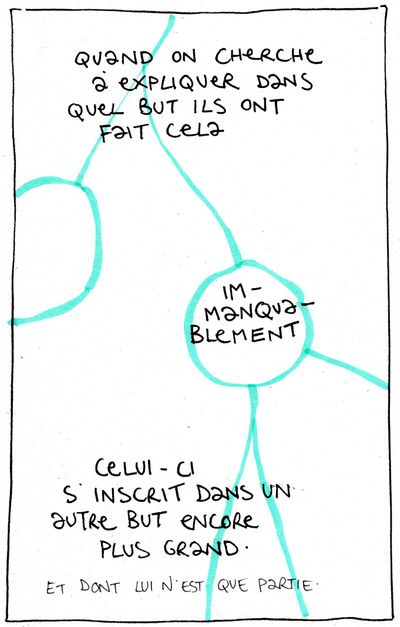 QUAND ON CHERCHE
à EXPLIQUER DANS
QUEL BUT ILS ONT
FAIT CELA
IM-
MANQUA-
BLEMENT
CELUI-CI
S'INSCRIT DANS UN
AUTRE BUT ENCORE
PLUS GRAND.
ET DONT LUI N'EST QUE PARTIE.